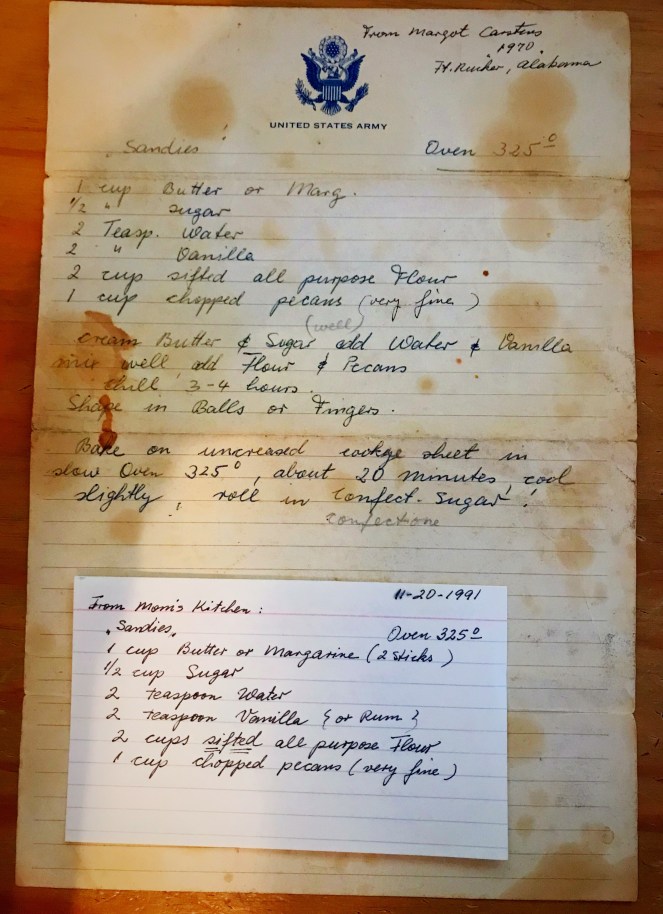 From Margot Carstens
1970
Ft. Rucker, Alabama
UNITED STATES ARMY
"Sandies" Oven 325°
1 cup Butter or Marg.
1/2 " sugar
2 Teasp. Water
2 " Vanilla
2 cup sifted all purpose Flour
1 cup chopped pecans (very fine)
(well)
cream Butter & Sugar add Water & Vanilla
mix well, add Flour & Pecans
chill 3-4 hours.
Shape in Balls or Fingers.
Bake on uncreased cookye sheet in
slow Oven 325°, about 20 minutes, cool
slightly, roll in Confect. Sugar!
confectione
11-20-1991
From Mom's Kitchen:
"Sandies" Oven 325°
1 cup Butter or Margarine (2 Sticks)
1/2 cup Sugar
2 teaspoon Water
2 teaspoon Vanilla {or Rum}
2 cups sifted all purpose Flour
1 cup chopped pecans (very fine)